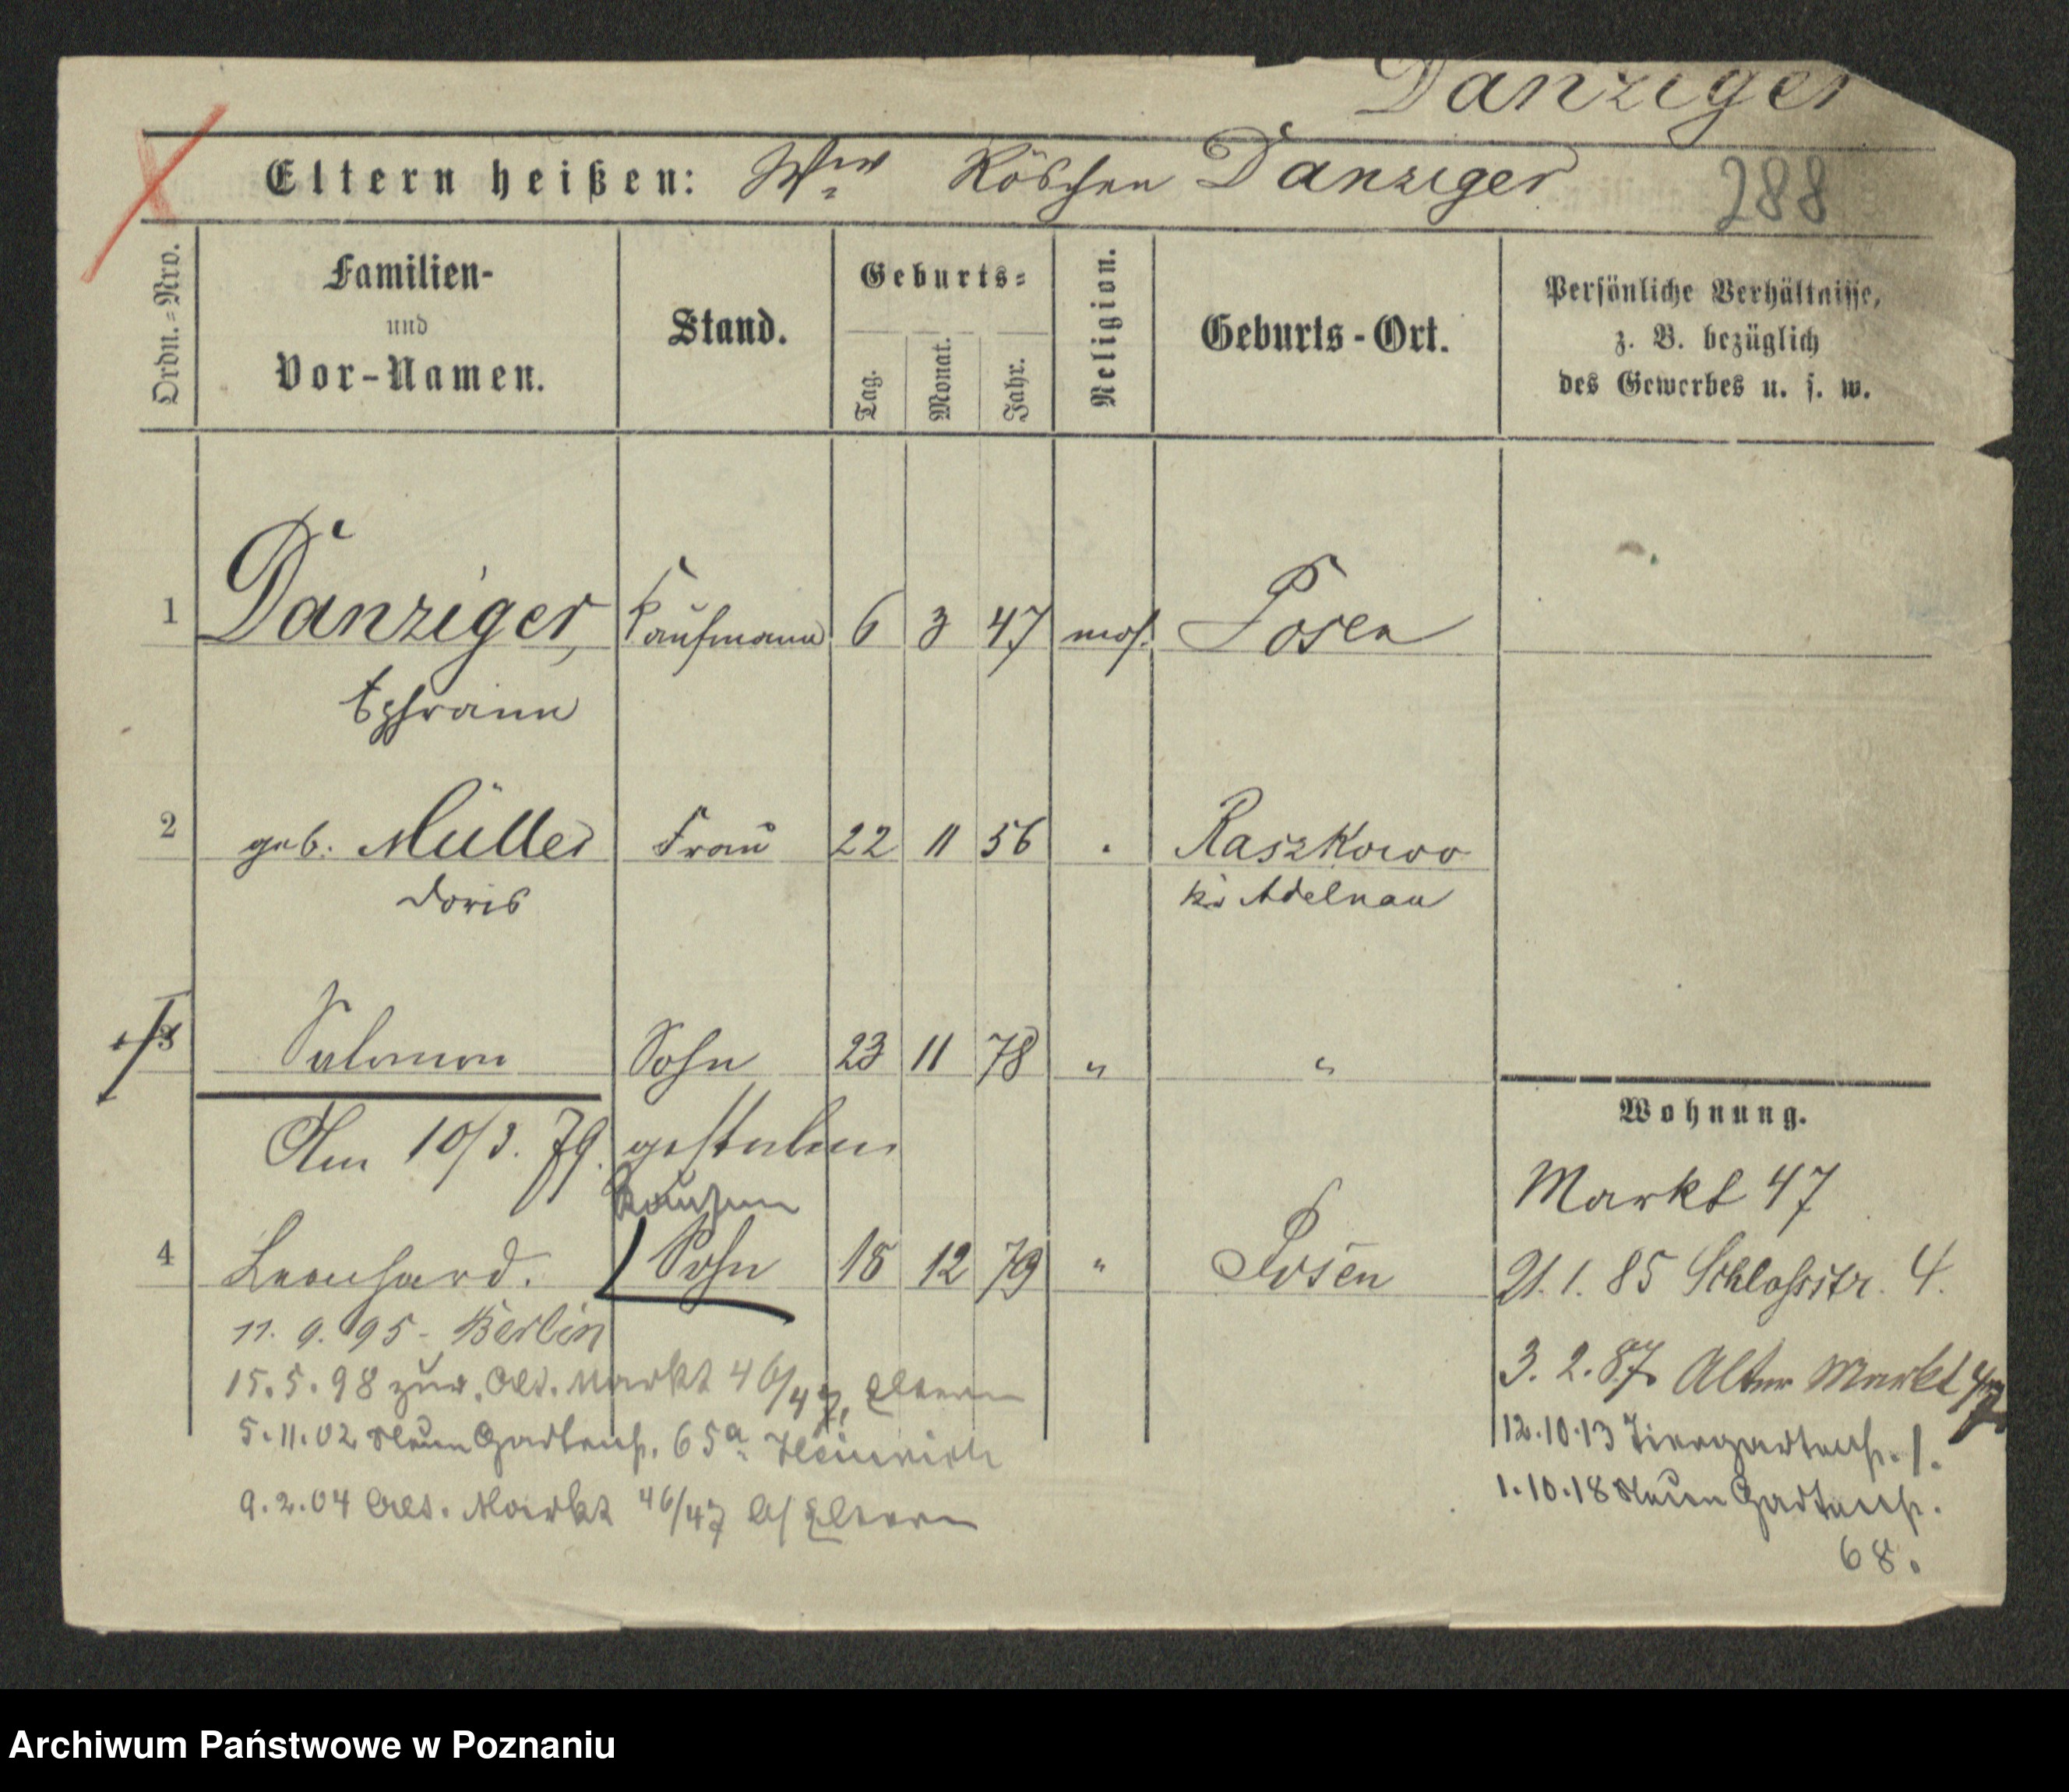 Danziger
Eltern heißen: Wwe Röschen Danziger
288
Ordn.=Nro.
Familien-
und
Vor-Namen.
Stand.
Geburts=
Tag.
Monat.
Jahr.
Religion.
Geburts-Ort.
Persönliche Verhältnisse,
z. B. bezüglich
des Gewerbes u. s. w.
1 Danziger, Kaufmann 6 3 47 mos. Posen
Ephraim
2 geb. Müller Frau 22 11 56 " Raszkowo
Doris Kr. Adelnau
3 Salomon Sohn 23 11 78 " "
Am 10/3. 79. gestorben
Kaufm
4 Leonhard. Sohn 18 12 79 " Posen
11. 9. 95 - Berlin
15. 5. 98 zur. Alt. Markt 46/47, Eltern
5. 11. 02 Neue Gartenstr. 65a Heinrich
9. 2. 04 Alt. Markt 46/47 b/ Eltern
Wohnung.
Markt 47
21. 1. 85 Schlossstr. 4.
3. 2. 87. Alter Markt 47
12. 10. 13 Tiergartenstr. 1.
1. 10. 18 Neue Gartenstr.
68.
Archiwum Państwowe w Poznaniu